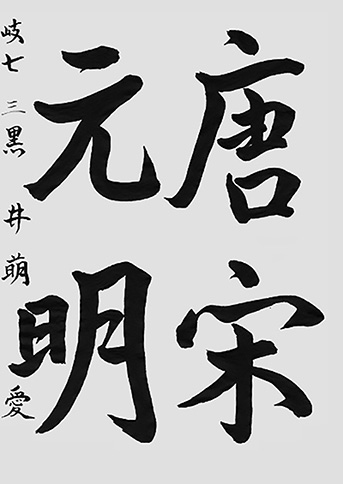 唐宋
元明
岐七 三黒 井 萌 愛